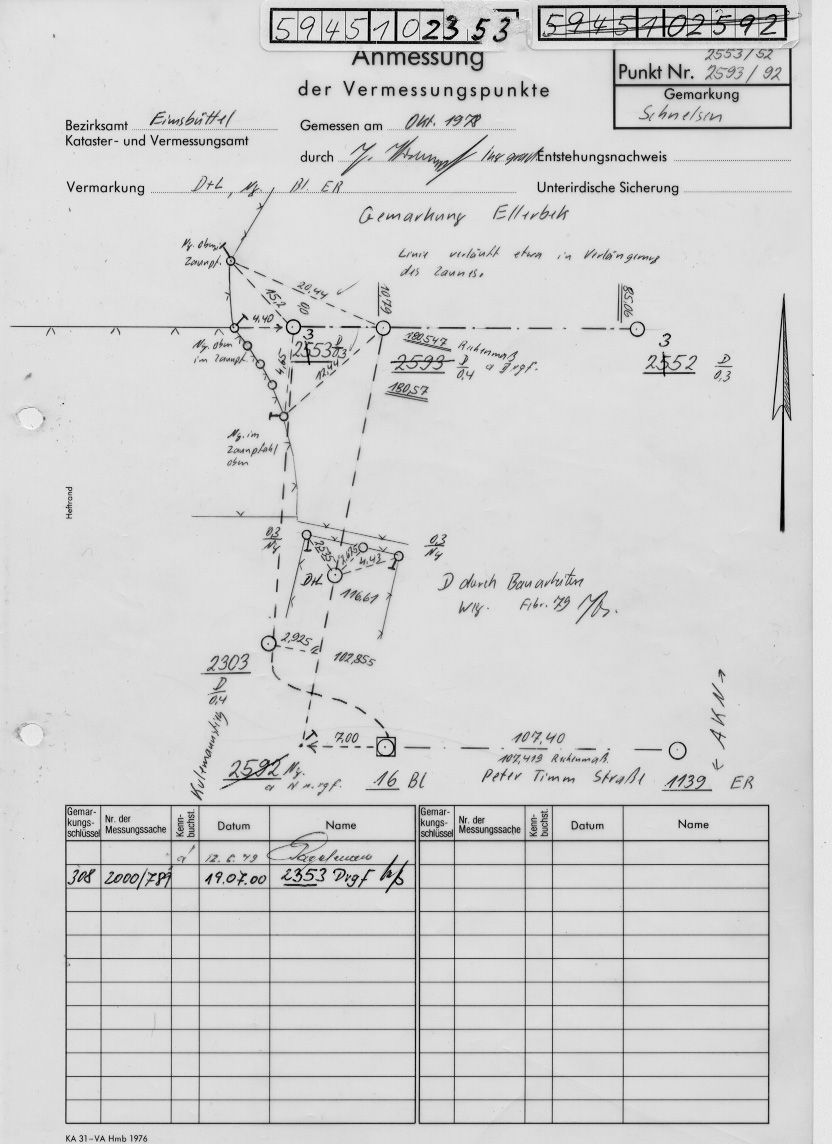 5945102353
5945102592
Anmessung
der Vermessungspunkte
2553/52
Punkt Nr. 2593/92
Gemarkung
Schnelsen
Bezirksamt Eimsbüttel
Kataster- und Vermessungsamt
Gemessen am Okt. 1978
durch
Entstehungsnachweis
Vermarkung D+L, Ng. Bl ER
Unterirdische Sicherung
Gemarkung Ellerbek
Linie verläuft etwa in Verlängerung
des Zaunes.
Ng. oben
Zaunpf.
20,44
15,2
10,79
85,06
4,40
3
2553 D
0,3
180,547 Rechenmaß
2593 D
0,4 a Drgf.
180,57
3
2552 D
0,3
Ng. oben
im Zaunpf.
4,65
12,44
Ng. im
Zaunpfahl
oben
Heftrand
0,3
Ng
0,3
Ng
4,43
D+L
116,61
D durch Bauarbeiten
Wlg. Febr. 79
2,925
102,855
2303
D
0,4
AKN
7,00
107,40
107,419 Rechenmaß
2592 Ng.
a N n. rgf.
16 Bl
Peter Timm Straße
1139 ER
Gemar-
kungs-
schlüssel
Nr. der
Messungssache
Kenn-
buchst.
Datum
Name
Gemar-
kungs-
schlüssel
Nr. der
Messungssache
Kenn-
buchst.
Datum
Name
a 12.6.79
308 2000/789 19.07.00 2353 Drgf
KA 31–VA Hmb 1976